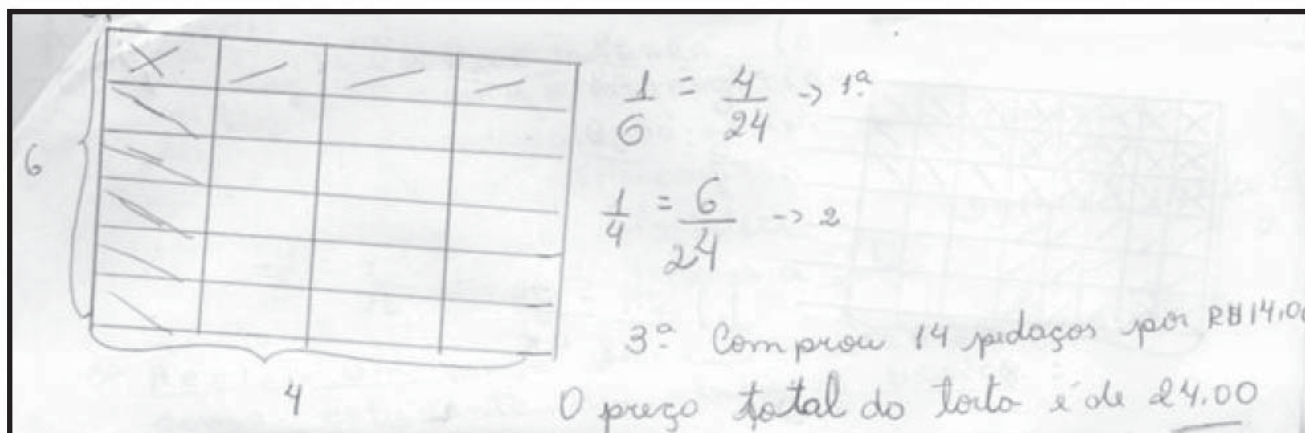 1/6 = 4/24 -> 1ª
6
1/4 = 6/24 -> 2
3ª Comprou 14 pedaços por R$14,00
4
O preço total do torta é de 24.00